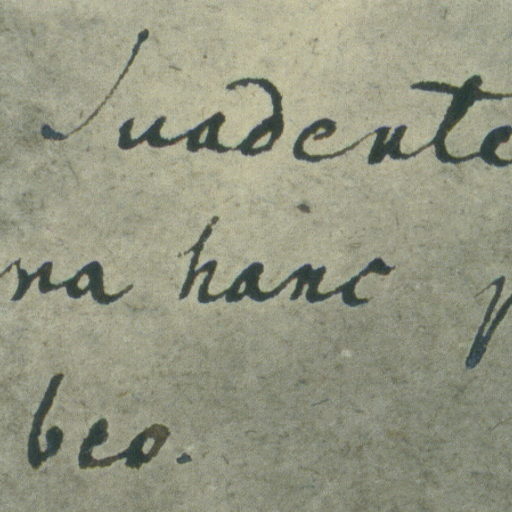 Suadente
na hanc p
beo.